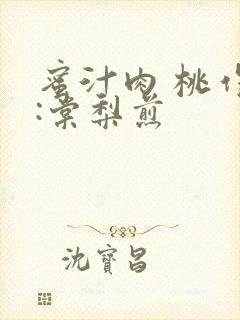 蜜汁肉桃作
:棠梨煎
沈寶昌